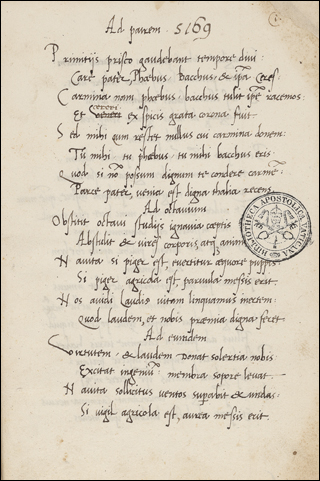 Ad patrem. 5169
Primitijs prisco gaudebant tempore diui
Care pater, Phœbus, Bacchus, & ipsa Ceres
Carmina nam phœbus, bacchus tulit ipse racemos:
cereri
Et ex spicis grata corona fuit.
Sed mihi cum restet nullus cui carmina donem:
Tu mihi tu phœbus, tu mihi bacchus eris.
Quod si nõ possum dignum te condere carmẽ:
Parce pater, venia est digna thalia recens.
Ad octauium
Obstitit octaui studijs ignauia cœptis
Abstulit & uires corporis, atq animi.
Nauita si piger est, euertitur æquore puppis:
Si piger agricola est, paruula messis erit.
Nos auidi laudis vitam linquamus inertem:
Quod laudem, et nobis præmia digna feret
Ad eundem
Virtutem, & laudem donat solertia nobis
Excitat ingeniũ: membra sopore leuat.
Nauita sollicitus uentos superabit & undas:
Si uigil agricola est, aurea messis erit.
BIBLIOTHECA APOSTOLICA VATICANA